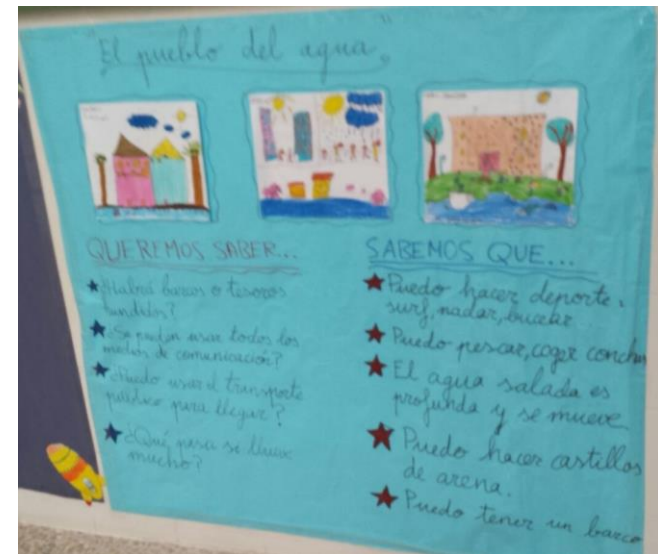 "El pueblo del agua"
QUEREMOS SABER...
¿Habrá barcos o tesoros
hundidos?
¿Se pueden usar todos los
medios de comunicación?
¿Puedo usar el transporte
público para llegar?
¿Qué pasa si llueve
mucho?
SABEMOS QUE...
Puedo hacer deporte:
surf, nadar, bucear
Puedo pescar, coger conchas
El agua salada es
profunda y se mueve
Puedo hacer castillos
de arena.
Puedo tener un barco